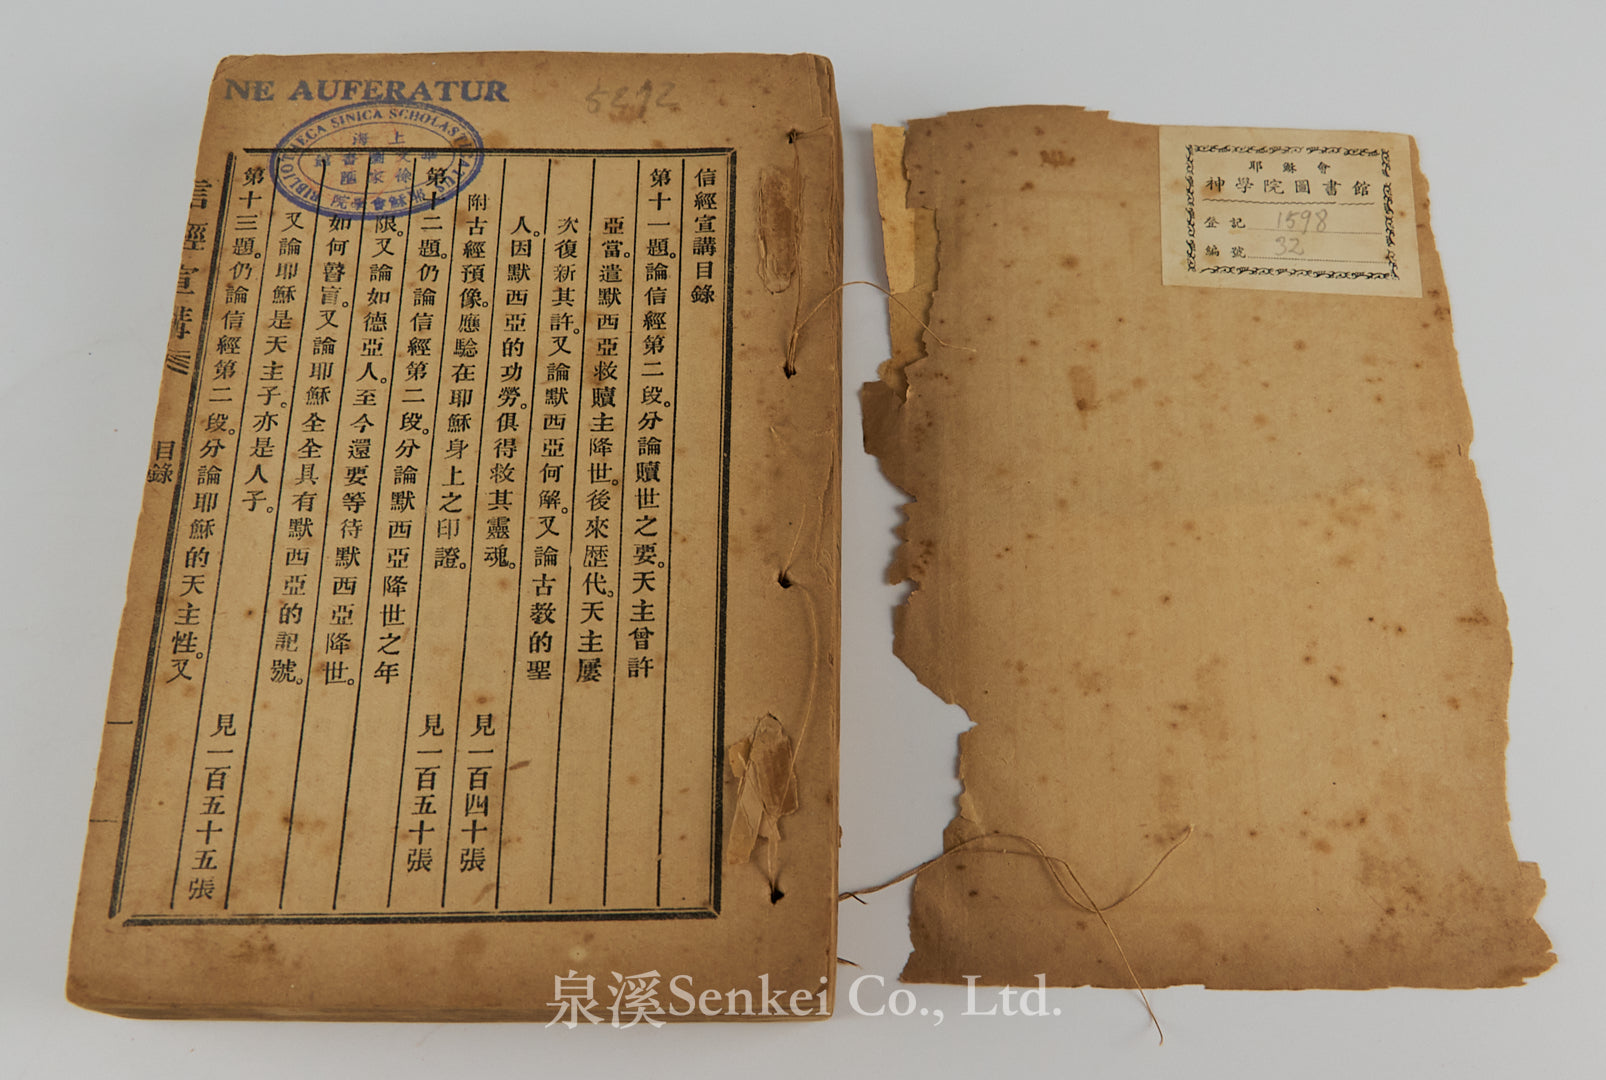 NE AUFERATUR
5272
BIBLIOTHECA SINICA SCHOLAST
上海
徐家匯
耶穌會學院
信經宣講目錄
第十一題。論信經第二段。分論贖世之要。天主曾許
亞當。遣默西亞救贖主降世。後來歷代。天主屢
次復新其許。又論默西亞何解。又論古教的聖
人。因默西亞的功勞。俱得救其靈魂。
附古經預像。應驗在耶穌身上之印證。 見一百四十張
第十二題。仍論信經第二段。分論默西亞降世之年 見一百五十張
限。又論如德亞人。至今還要等待默西亞降世。
如何瞽盲。又論耶穌全全具有默西亞的記號。
又論耶穌是天主子。亦是人子。
第十三題。仍論信經第二段。分論耶穌的天主性。又 見一百五十五張
信經宣講 三 目錄
耶穌會
神學院圖書館
登記 1598
編號 32
泉溪Senkei Co., Ltd.